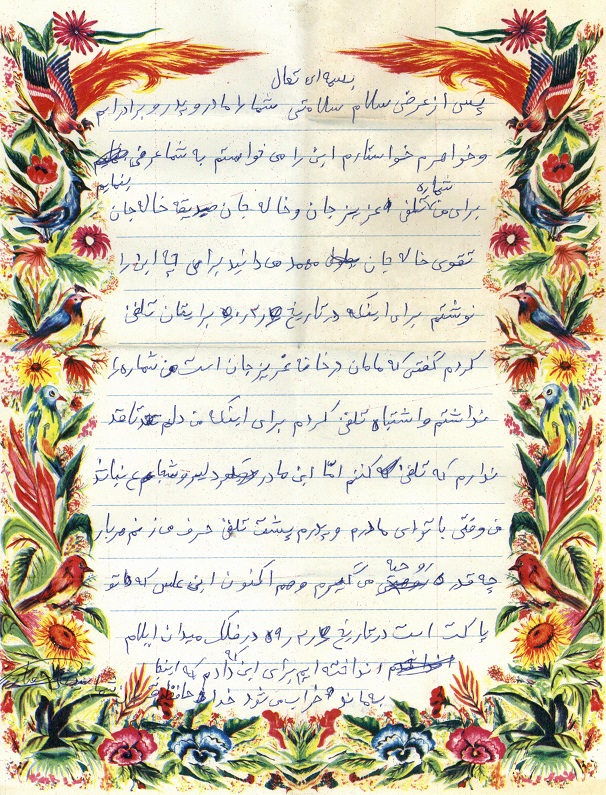 بسمه ای تعال
پس از عرض سلام سلامتی شما را مادر و پدر و برادرانم
و خواهرم خواستارم این را می خواستم به شما عرض
بنمایم
شماره
برای من تلفن عزیز جان و خاله جان صدیقه خاله جان
تقوی خاله جان محمد می دانید برای چه این را
نوشتم برای اینکه در تاریخ برایتان تلفن
کردم گفتی که مامان در خانه عزیز جان است من شماره را
نداشتم و اشتباه تلفن کردم برای اینکه من دلم
ندارم که تلفن کنم امّا این مادر
من وقتی با تو ای مادرم و پدرم پشت تلفن حرف می زنم هر بار
روحیه
چه قدر می گیرم و هم اکنون این عکس که تو
پاکت است در تاریخ در فلکه میدان ایلام
انداخته ایم برای این دادم که اینجا
بماند خراب می شود خدا حافظ